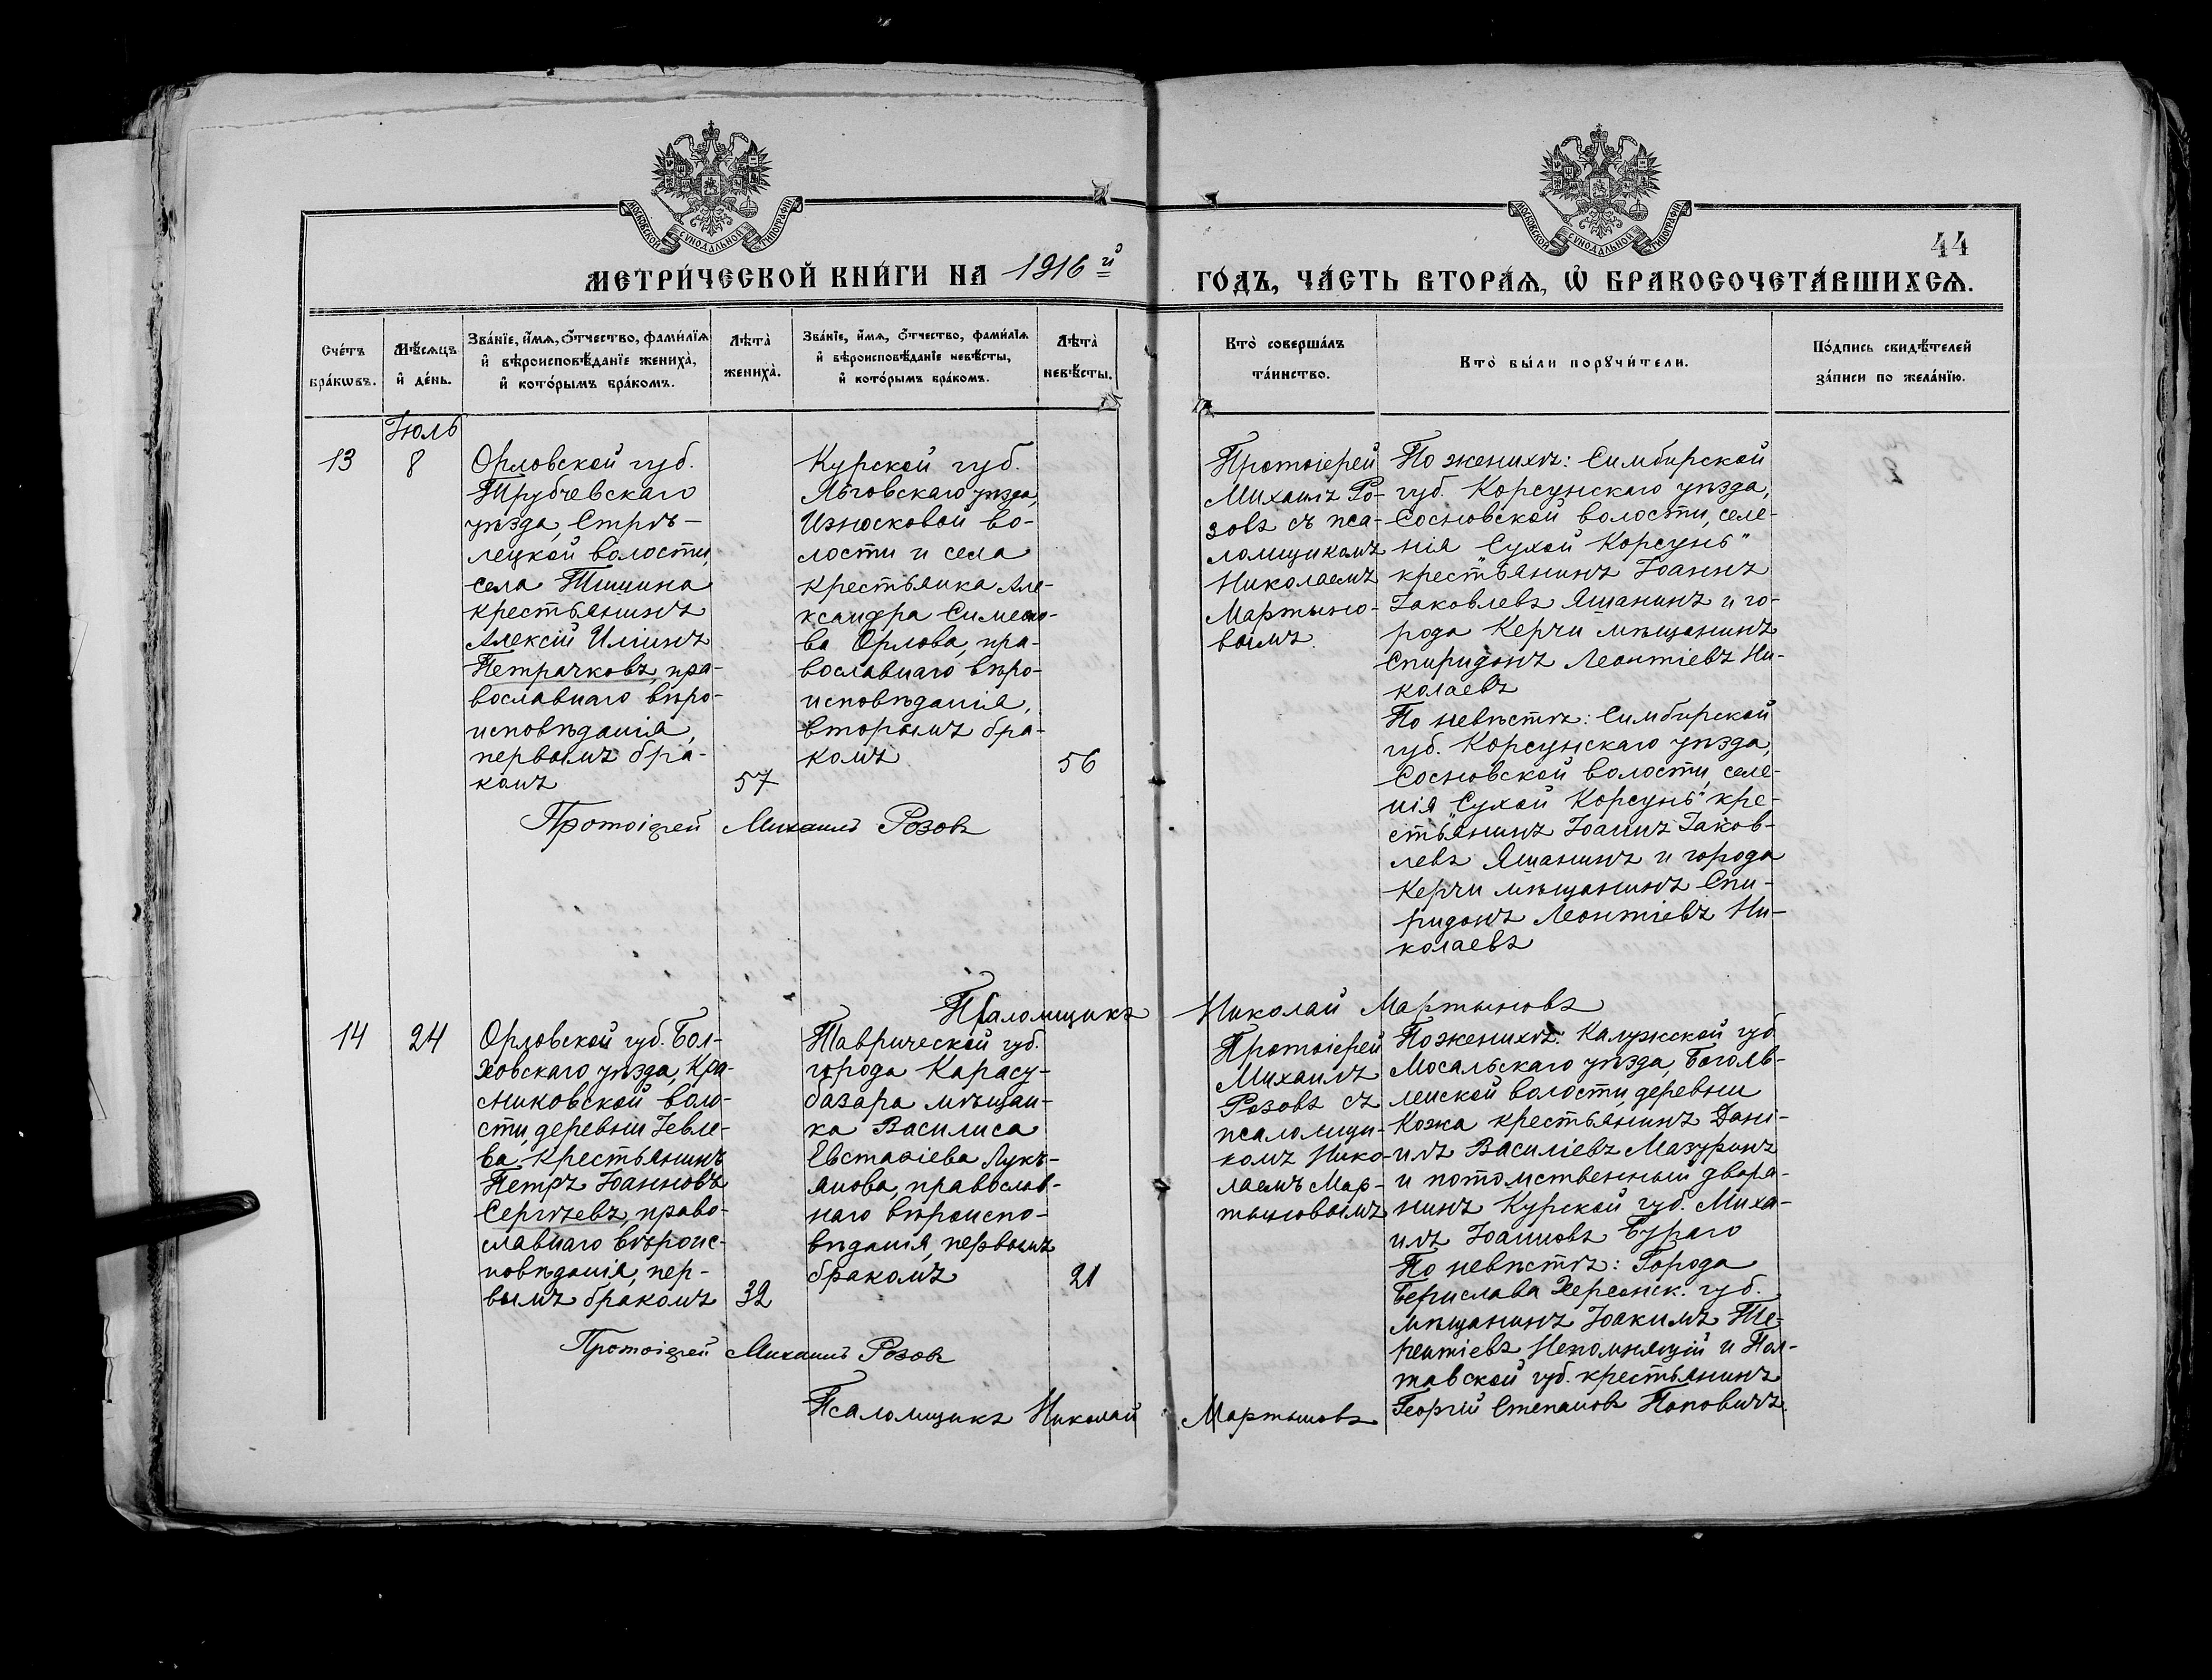 МОСКОВСКОЙ СѴНОДАЛЬНОЙ ТИПОГРАФІИ
МОСКОВСКОЙ СѴНОДАЛЬНОЙ ТИПОГРАФІИ
44
МЕТРИ́ЧЕСКОЙ КНИ́ГИ НА 1916 й
ГО́ДЪ, ЧА́СТЬ ВТОРА́Ѧ, Ѡ҆ БРАКОСОЧЕТА́ВШИХСѦ.
Сче́тъ бра́кѡвъ.
Мѣ́сѧцъ и҆ де́нь.
Зва́нїе, и҆́мѧ, о҆́тчество, фами́лїѧ и҆ вѣроисповѣ́данїе жениха̀, и҆ кото́рымъ бра́комъ.
Лѣ́та̀ жениха̀.
Зва́нїе, и҆́мѧ, о҆́тчество, фами́лїѧ и҆ вѣроисповѣ́данїе невѣ́сты, и҆ кото́рымъ бра́комъ.
Лѣ́та̀ невѣ́сты.
Кто̀ соверша́лъ та́инство.
Кто̀ бы́ли порꙋчи́тели.
По́дпись свидѣ́телей за́писи по жела́нїю.
Іюль
13
8
Орловской губ.
Трубчевскаго
уѣзда, Стрѣ-
лецкой волости,
села Тишина
крестьянинъ
Алексій Иліинъ
Петрачковъ, пра-
вославнаго вѣро-
исповѣданія,
первымъ бра-
комъ
57
Курской губ.
Льговскаго уѣзда,
Износковой во-
лости и села
крестьянка Але-
ксандра Симеоно-
ва Орлова, пра-
вославнаго вѣро-
исповѣданія,
вторымъ бра-
комъ
56
Протоіерей
Михаилъ Ро-
зовъ съ пса-
ломщикомъ
Николаемъ
Мартыно-
вымъ.
По женихѣ: Симбирской
губ. Корсунскаго уѣзда,
Сосновской волости, селе-
нія „Сухой Корсунь"
крестьянинъ Іоаннъ
Іаковлевъ Яшанинъ и го-
рода Керчи мѣщанинъ
Спиридонъ Леонтіевъ Ни-
колаевъ
По невѣстѣ: Симбирской
губ. Корсунскаго уѣзда,
Сосновской волости, селе-
нія „Сухой Корсунь" кре-
стьянинъ Іоаннъ Іаков-
левъ Яшанинъ и города
Керчи мѣщанинъ Спи-
ридонъ Леонтіевъ Ни-
колаевъ
Протоіерей Михаилъ Розовъ
Псаломщикъ Николай Мартыновъ
14
24
Орловской губ. Бол-
ховскаго уѣзда, Кра-
сниковской воло-
сти, деревни Іевле-
ва, крестьянинъ
Петръ Іоанновъ
Сергѣевъ, право-
славнаго вѣроис-
повѣданія, пер-
вымъ бракомъ
32
Таврической губ.
города Карасу-
базара мѣщан-
ка Василиса
Евстаѳіева Лукъ-
янова, православ-
наго вѣроиспо-
вѣданія, первымъ
бракомъ
21
Протоіерей
Михаилъ
Розовъ съ
псаломщи-
комъ Нико-
лаемъ Мар-
тыновымъ
По женихѣ: Калужской губ
Мосальскаго уѣзда, Боголв-
ленской волости, деревни
Кожа крестьянинъ Дані-
илъ Василіевъ Мазуринъ
и потомственный дворя-
нинъ Курской губ. Миха-
илъ Іоанновъ Бураго
По невѣстѣ: Города
Берислава Херсонск. губ.
мѣщанинъ Іоакимъ Те-
рентіевъ Непомнящій и Пол-
тавской губ. крестьянинъ
Георгій Степановъ Поповичъ.
Протоіерей Михаилъ Розовъ
Псаломщикъ Николай Мартыновъ